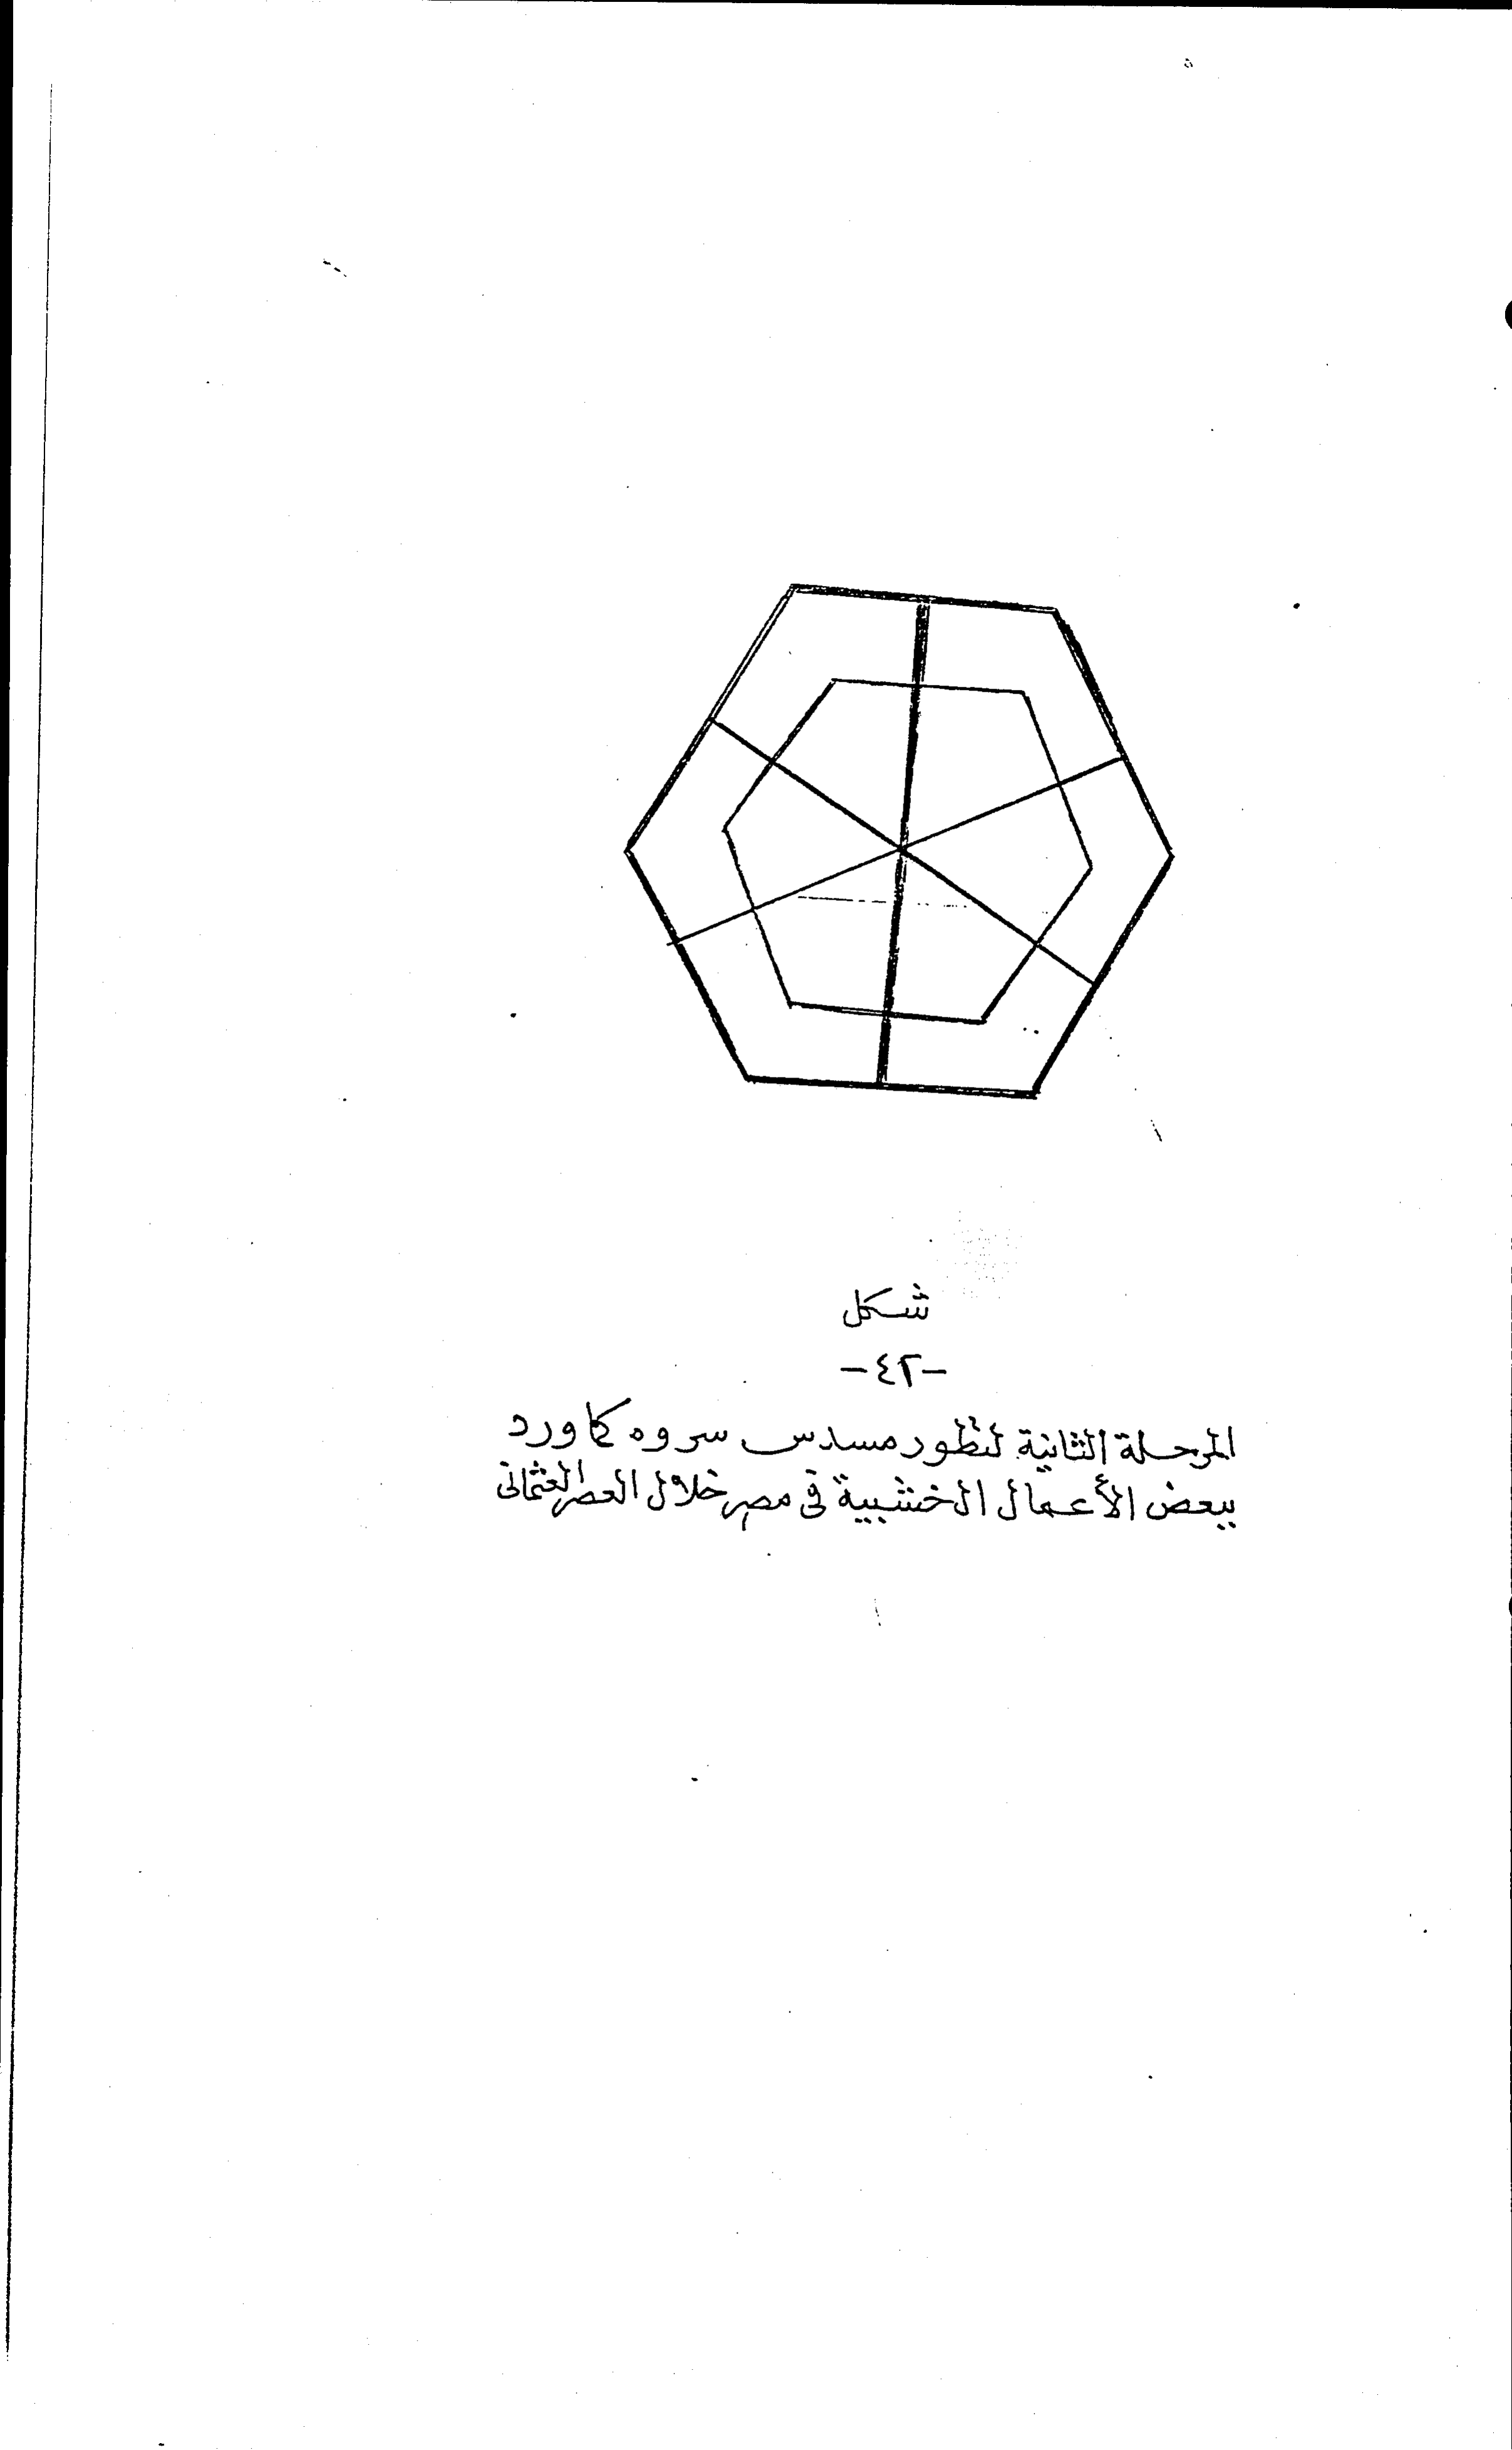 شكل
-٤٢-
المرحلة الثانية لتطور مسدس سروه كما ورد
ببعض الأعمال الخشبية فى مصر خلال العصر العثمانى